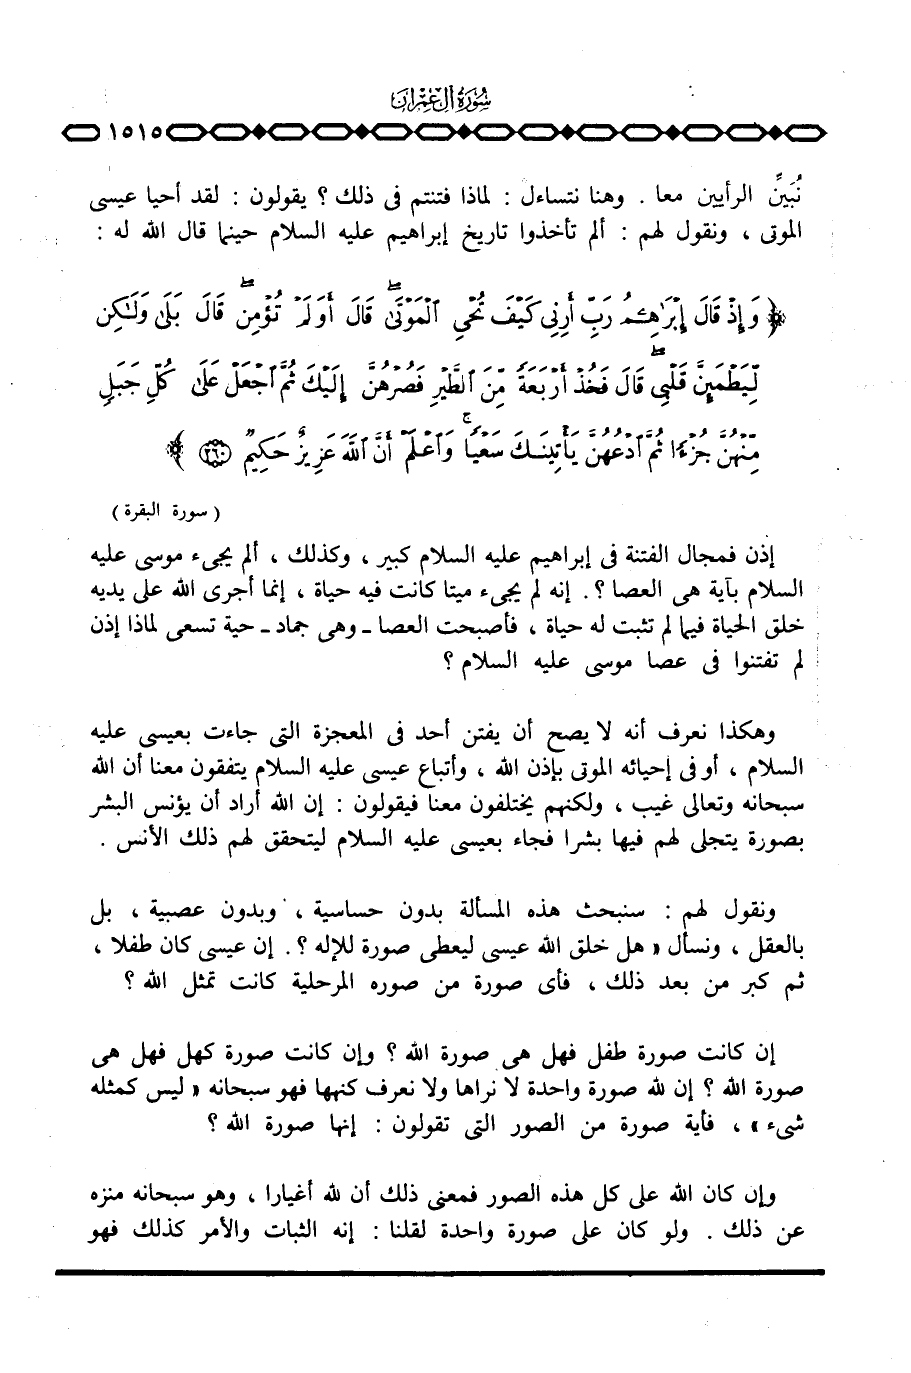 سُورَةُ آل عِمْرَان
١٥١٥
نُبَينِّ الرأيين معا . وهنا نتساءل : لماذا فتنتم فى ذلك ؟ يقولون : لقد أحيا عيسى
الموتى ، ونقول لهم : ألم تأخذوا تاريخ إبراهيم عليه السلام حينما قال الله له :
﴿ وَإِذْ قَالَ إِبْرَٰهِـۧمُ رَبِّ أَرِنِى كَيْفَ تُحْىِ ٱلْمَوْتَىٰ ۖ قَالَ أَوَلَمْ تُؤْمِن ۖ قَالَ بَلَىٰ وَلَـٰكِن
لِّيَطْمَئِنَّ قَلْبِى ۖ قَالَ فَخُذْ أَرْبَعَةً مِّنَ ٱلطَّيْرِ فَصُرْهُنَّ إِلَيْكَ ثُمَّ ٱجْعَلْ عَلَىٰ كُلِّ جَبَلٍ
مِّنْهُنَّ جُزْءًا ثُمَّ ٱدْعُهُنَّ يَأْتِينَكَ سَعْيًا ۚ وَٱعْلَمْ أَنَّ ٱللَّهَ عَزِيزٌ حَكِيمٌ ٢٦٠ ﴾
( سورة البقرة )
إذن فمجال الفتنة فى إبراهيم عليه السلام كبير ، وكذلك ، ألم يجىء موسى عليه
السلام بآية هى العصا ؟. إنه لم يجىء ميتا كانت فيه حياة ، إنما أجرى الله على يديه
خلق الحياة فيما لم تثبت له حياة ، فأصبحت العصا ـ وهى جماد ـ حية تسعى لماذا إذن
لم تفتنوا فى عصا موسى عليه السلام ؟
وهكذا نعرف أنه لا يصح أن يفتن أحد فى المعجزة التى جاءت بعيسى عليه
السلام ، أو فى إحيائه الموتى بإذن الله ، وأتباع عيسى عليه السلام يتفقون معنا أن الله
سبحانه وتعالى غيب ، ولكنهم يختلفون معنا فيقولون : إن الله أراد أن يؤنس البشر
بصورة يتجلى لهم فيها بشرا فجاء بعيسى عليه السلام ليتحقق لهم ذلك الأنس .
ونقول لهم : سنبحث هذه المسألة بدون حساسية ، وبدون عصبية ، بل
بالعقل ، ونسأل « هل خلق الله عيسى ليعطى صورة للإله ؟. إن عيسى كان طفلا ،
ثم كبر من بعد ذلك ، فأى صورة من صوره المرحلية كانت تمثل الله ؟
إن كانت صورة طفل فهل هى صورة الله ؟ وإن كانت صورة كهل فهل هى
صورة الله ؟ إن لله صورة واحدة لا نراها ولا نعرف كنهها فهو سبحانه « ليس كمثله
شىء » ، فأية صورة من الصور التى تقولون : إنها صورة الله ؟
وإن كان الله على كل هذه الصور فمعنى ذلك أن لله أغيارا ، وهو سبحانه منزه
عن ذلك . ولو كان على صورة واحدة لقلنا : إنه الثبات والأمر كذلك فهو